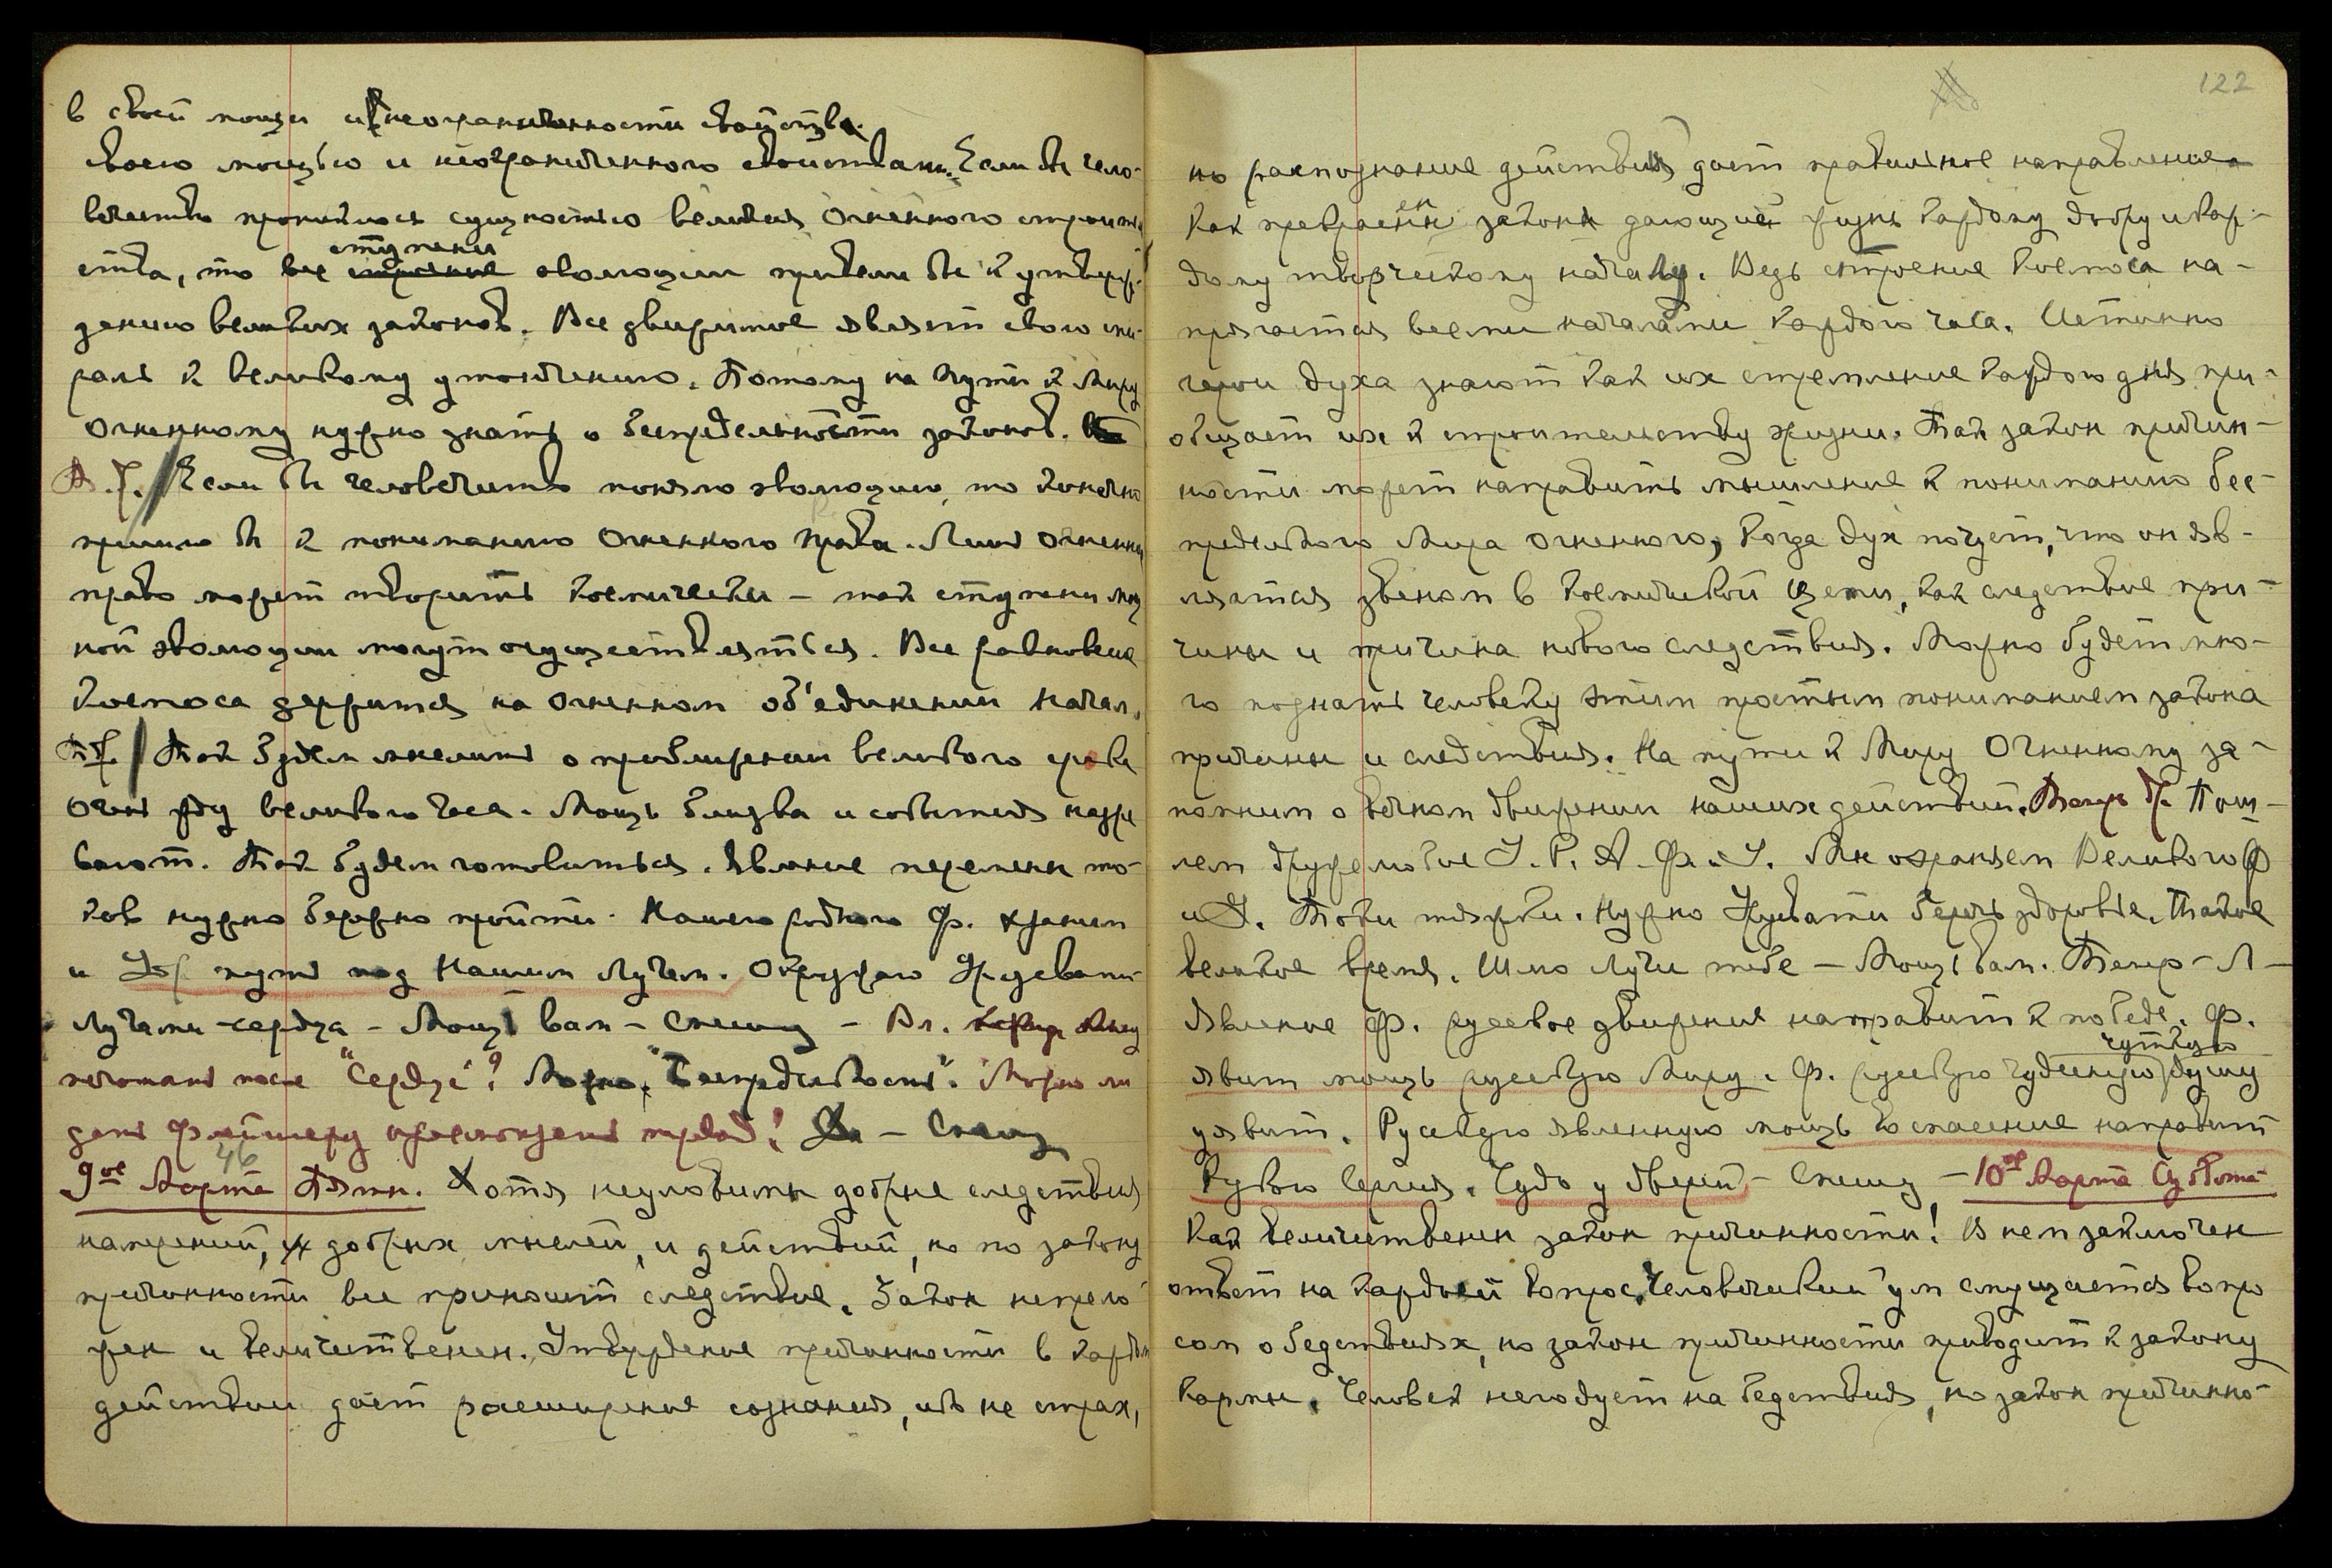 в своей мощи и неограниченности свойства.
своею мощью и неограниченного свойствами. Если бы чело-
вечество прониклось сущностью великия Огненного строитель
ступени
ства, то все строение эволюции привели бы к утверж-
дению великих законов. Все движимое являет свою спи-
раль к великому утончению. Потому на пути к Миру
Огненному нужно знать о беспредельности законов.
Если бы человечество поняло эволюцию, то конечно
пришло бы к пониманию Огненного права. Лишь Огненное
право может творить космически – так ступени
ной эволюции могут осуществляться. Все равновесие
Космоса держится на Огненном об'единении Начал.
Так будем мыслить о приближении великого срока
Очень жду великого часа. Мощь близка и события назре
вают. Так будем готовиться. Явление перемены то-
ков нужно бережно пройти. Нашего родного Ф. храним
и путь под Нашим Лучем. Окружаю Урусвати
Лучами сердца – Мощь вам – Спешу – Вл.
печатать после "Сердце"? Можно, "Беспредельность". Можно ли
дать предложенный труд? Да – Спешу
46
9ое Марта Пятн. Хотя неуловимы добрые следствия
намерений, добрых мыслей, и действий, но по закону
причинности все приносит следствие. Закон непрело
жен и величественен. Утверждение причинности в каждом
действии дает расширение сознания, ибо не страх,
122
но распознание действия дает правильное направление
ен
Как прекрасен закон дающий жизнь каждому добру и каж-
дому творческому началу. Ведь строение Космоса на-
прягается всеми началами каждого часа. Истинно
герои духа знают как их стремление каждого дня при-
общает их к строительству жизни. Так закон причин-
ности может направить мышление к пониманию бес-
предельного Мира Огненного, когда дух почует, что он яв-
ляется звеном в космической цепи, как следствие при-
чины и причина нового следствия. Можно будет мно-
го поднять человеку этим простым пониманием закона
причины и следствия. На пути к Миру Огненному за-
помним о вечном движении наших действий. Пош-
лем дружелюбие У. Р. А. Ф. У. Мы охраняем Великого Ф
и У. Токи тяжки. Нужно Урусвати беречь здоровье. Такое
великое время. Шлю Лучи тебе – Мощь вам.
Явление Ф. русское движение направит к победе. Ф.
чуткую
явит мощь русскую Миру. Ф. русскую чудесную душу
уявит. Русскую явленную мощь во спасение направит
Рукою Сергия. Чудо у дверей – Спешу – 10ое Марта Суббота
Как величественен закон причинности! В нем заключен
ответ на каждый вопрос. Человеческий ум смущается вопро
сом о бедствиях, но закон причинности приводит к закону
Кармы. Человек негодует на бедствия, но закон причинно-